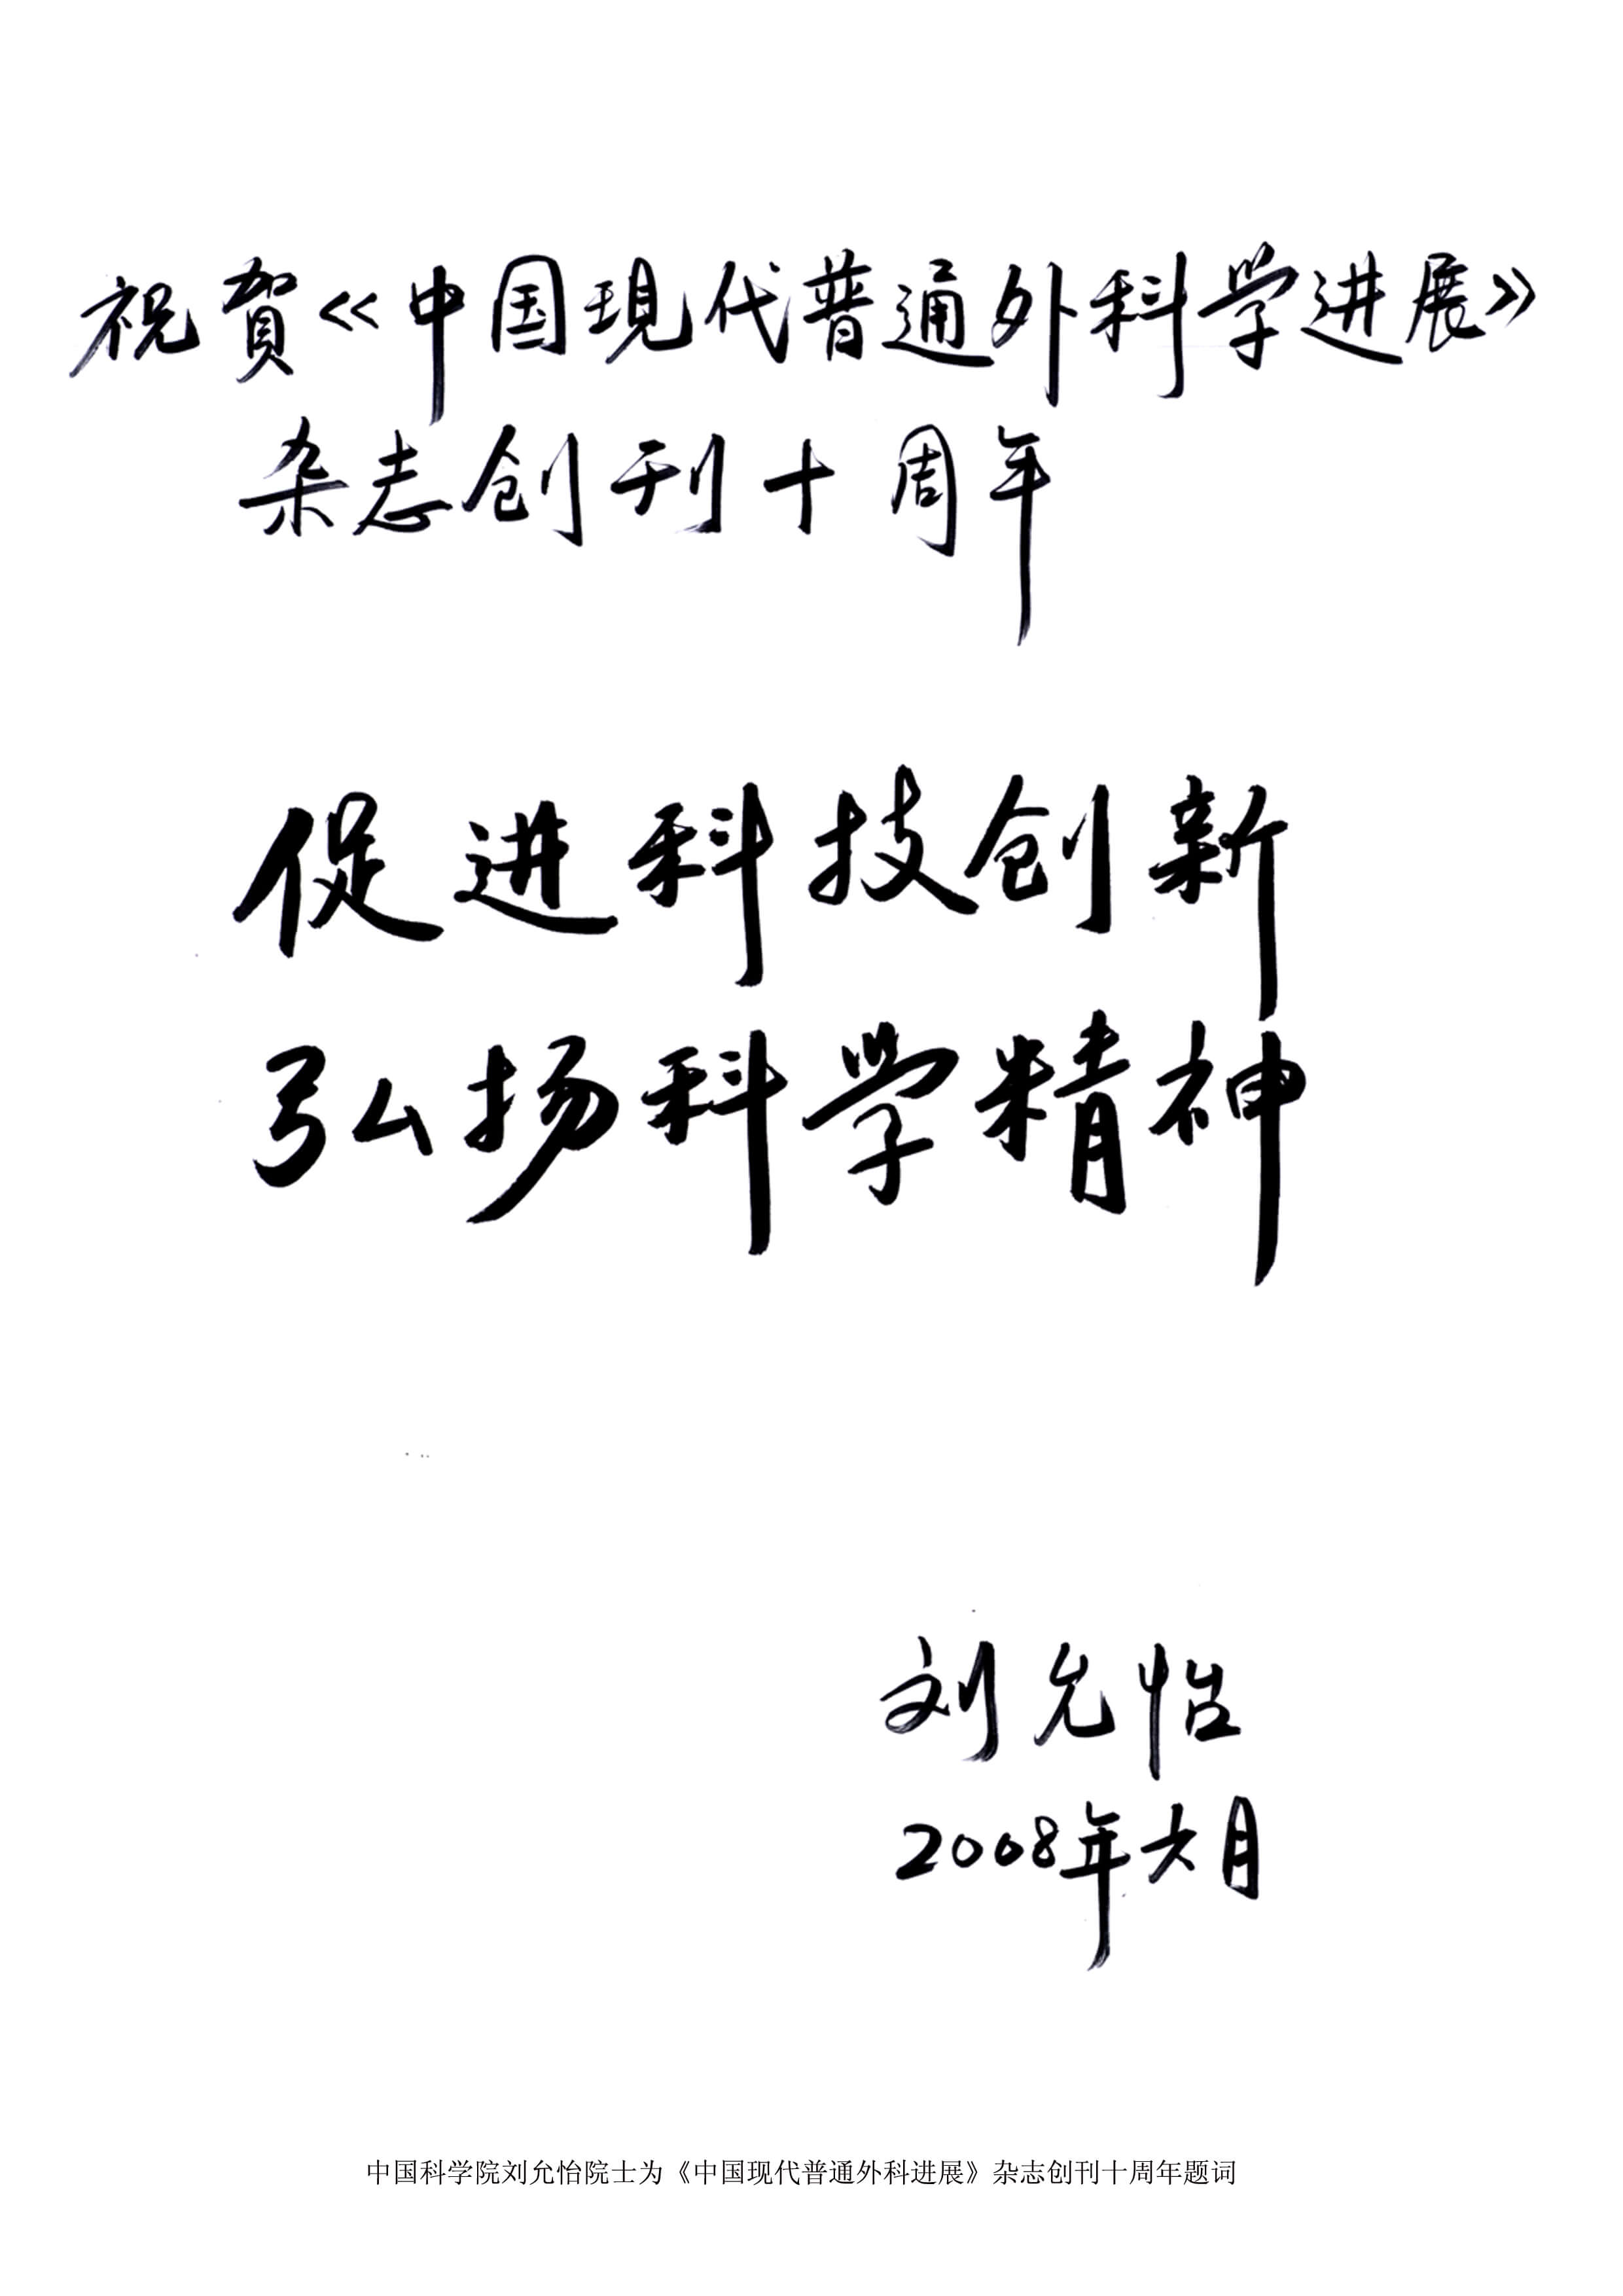 祝賀《中国現代普通外科学进展》
杂志创刊十周年
促进科技创新
弘扬科学精神
刘允怡
2008年六月
中国科学院刘允怡院士为《中国现代普通外科进展》杂志创刊十周年题词